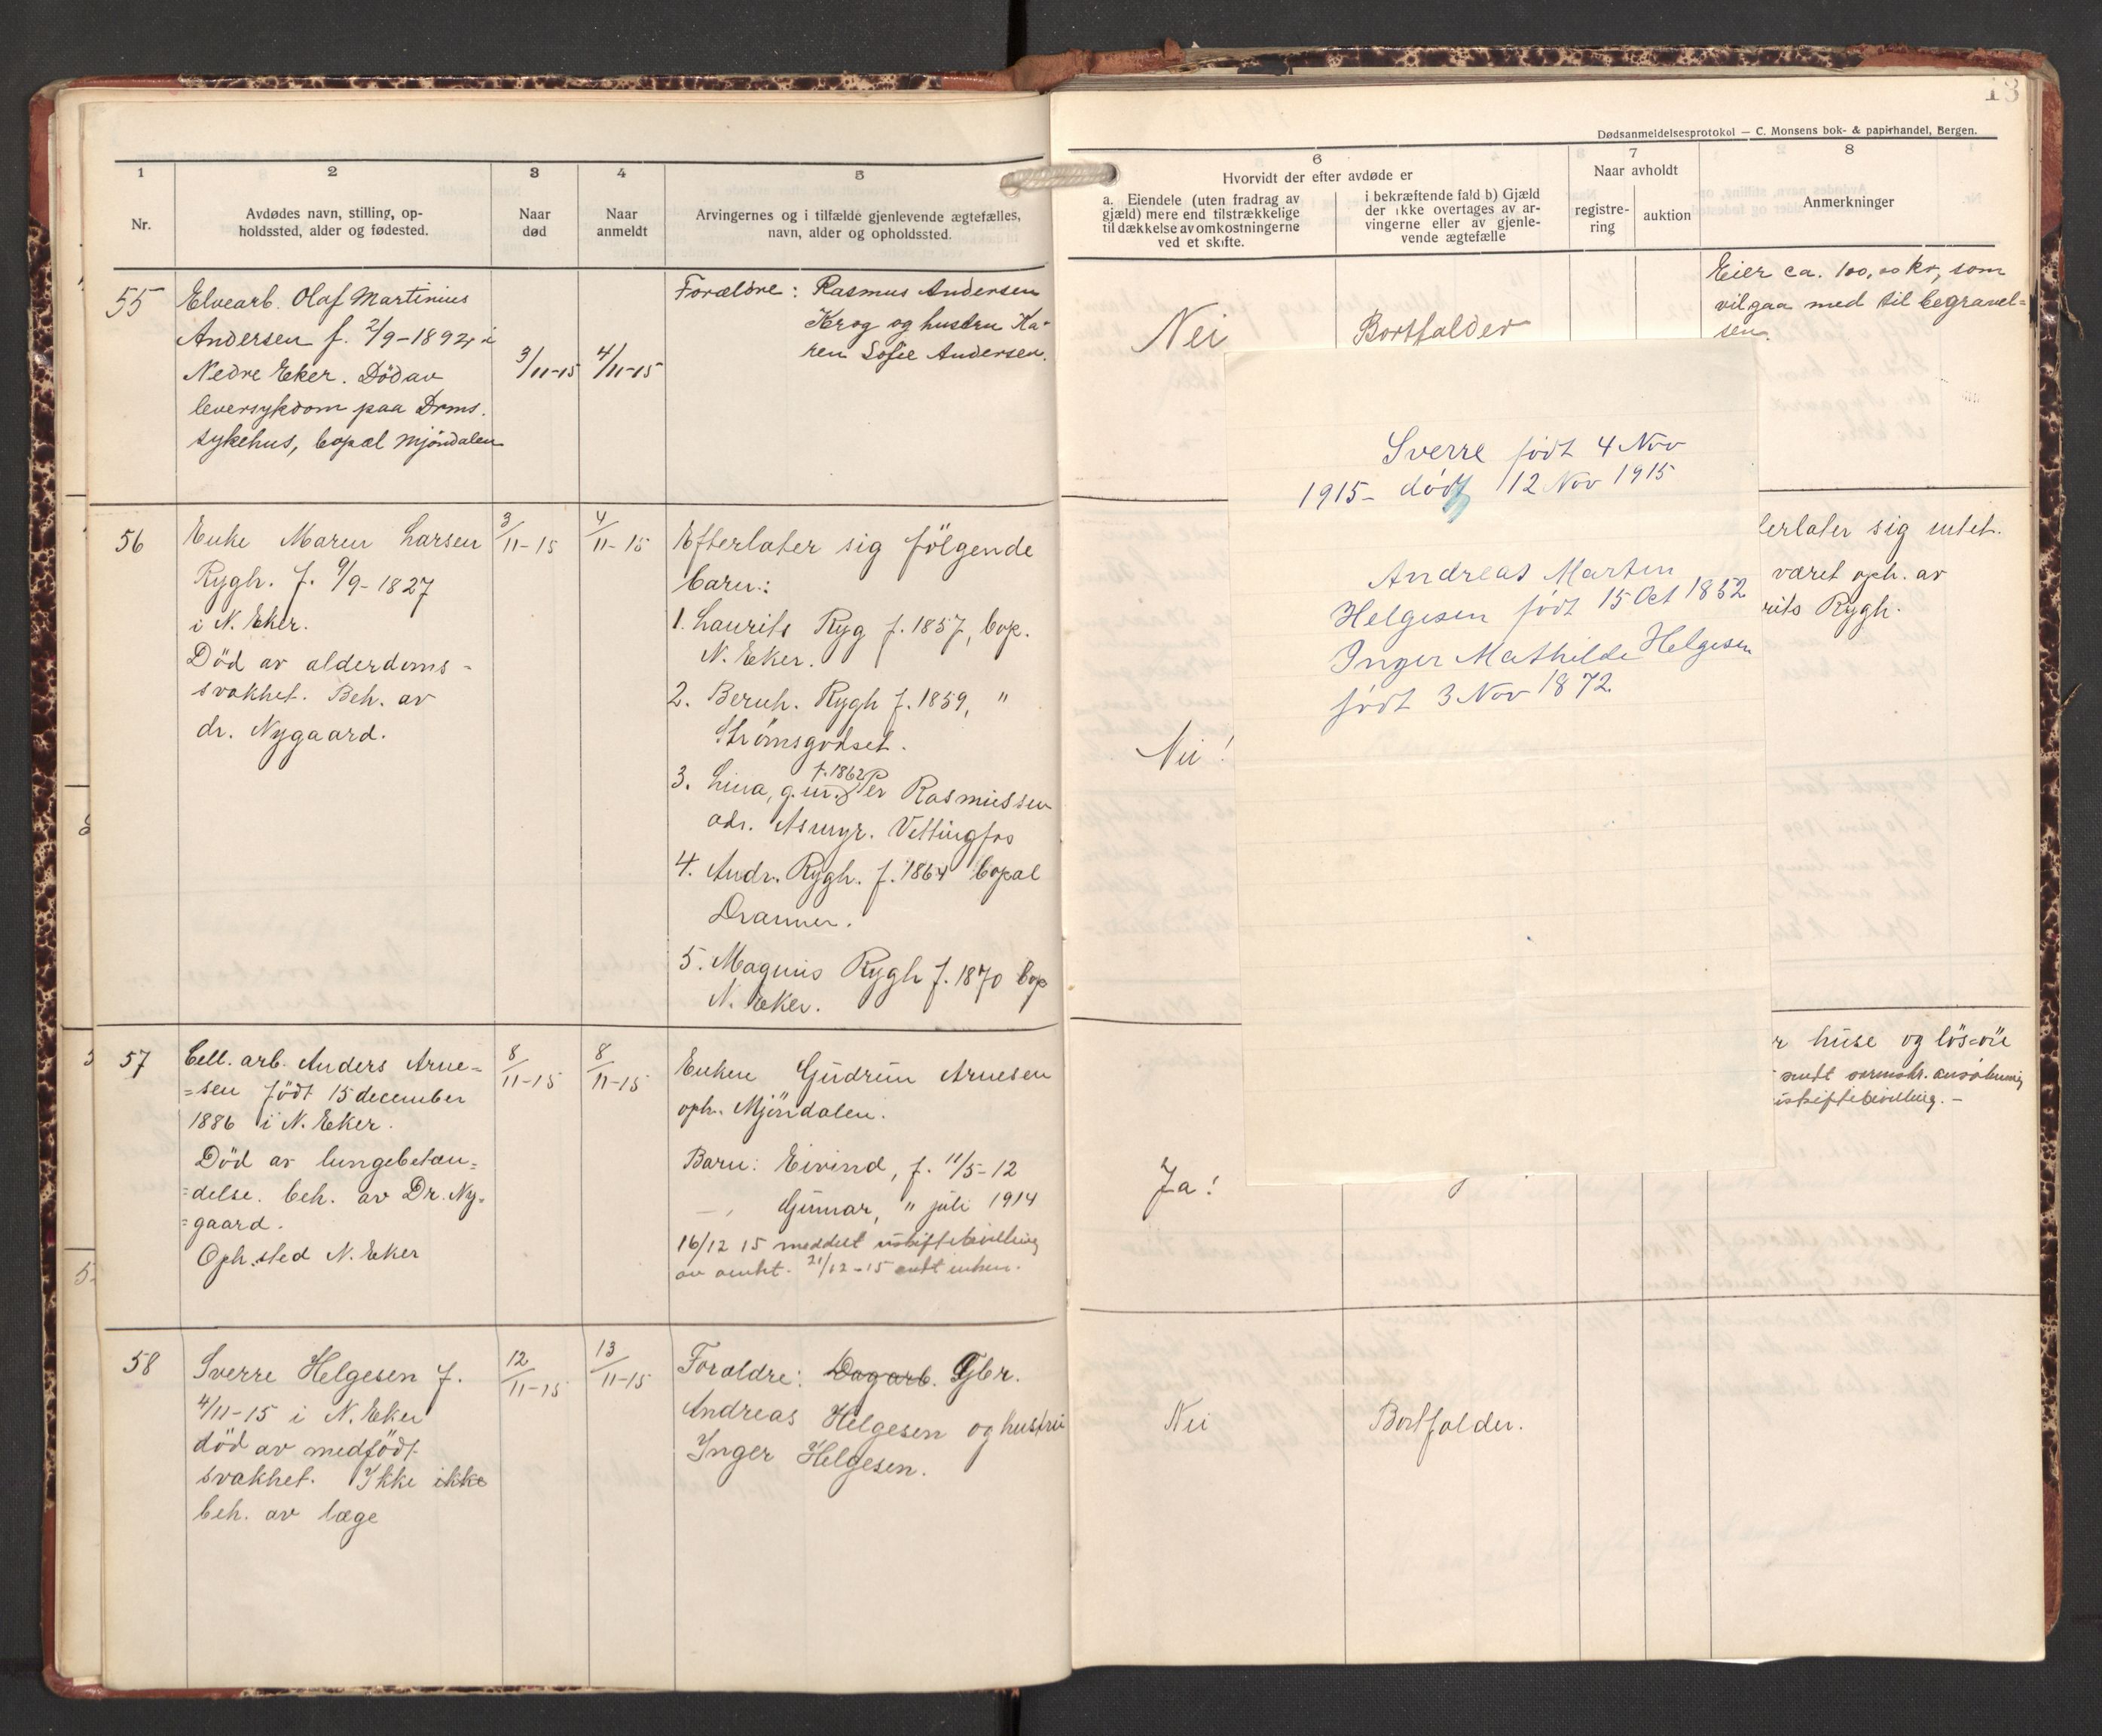 1
2
3
4
5
Nr.
Avdødes navn, stilling, op-
holdssted, alder og fødested.
Naar
død
Naar
anmeldt
Arvingernes og i tilfælde gjenlevende ægtefælles,
navn, alder og opholdssted.
55
Elvearb. Olaf Martinius
Andersen f. 2/9-1892 i
Nedre Eker. Död av
leversykdom paa Drms.
sykehus, bopæl Mjöndalen
3/11-15
4/11-15
Forældre: Rasmus Andersen
Krog og hustru Ka-
ren Sofie Andersen.
56
Enke Maren Larsen
Rygh. f. 9/9-1827
i N. Eker.
Död av alderdoms-
svakhet. Beh. av
dr. Nygaard.
3/11-15
4/11-15
Efterlater sig fölgende
barn:
1. Laurits Ryg f. 1857, bop.
N. Eker.
2. Bernh. Rygh f. 1859, "
Strømsgodset.
f. 1862
3. Lina, g.m. Per Rasmussen
adr. Asmyr. Vittingfos
4. Andr. Rygh. f. 1864 bopæl
Drammen.
5. Magnus Rygh f. 1870 bop
N. Eker.
57
Cell. arb. Anders Arne=
=sen födt 15 december
1886 i N. Eker.
Död av lungebetæn=
=delse. beh. av Dr. Ny=
=gaard.
Oph.sted N. Eker
8/11-15
8/11-15
Enken Gudrun Arnesen
oph. Mjöndalen.
Barn: Eivind, f. 11/5-12
— " Gunnar, " juli 1914
16/12 15 meddelt uskiftebevilling
av amtet. 21/12-15 sendt enken.
58
Sverre Helgesen f.
4/11-15 i N. Eker
död av medfödt
svakhet. Ikke ikke
beh. av læge
12/11-15
13/11-15
Forældre: Dagarb. Gbr.
Andreas Helgesen og hustru
Inger Helgesen.
13
Dødsanmeldelsesprotokol — C. Monsens bok- & papirhandel, Bergen.
6
7
8
Hvorvidt der efter avdøde er
Naar avholdt
a. Eiendele (uten fradrag av
gjæld) mere end tilstrækkelige
til dækkelse av omkostningerne
ved et skifte.
i bekræftende fald b) Gjæld
der ikke overtages av ar-
vingerne eller av gjenle-
vende ægtefælle
registre-
ring
auktion
Anmerkninger
Nei
Bortfalder
Eier ca. 100,00 kr, som
vil gaa med til begravel=
sen.
Sverre født 4 Nov
1915 - død 12 Nov 1915
Andreas Marten
Helgesen født 15 Oct 1852
Inger Mathilde Helgesen
født 3 Nov 1872.
Nei!
terlater sig intet.
været oph. av
rits Rygh.
Ja!
r huse og lös=öre
sendt
uskiftebevilling. —
Nei
Bortfalder.